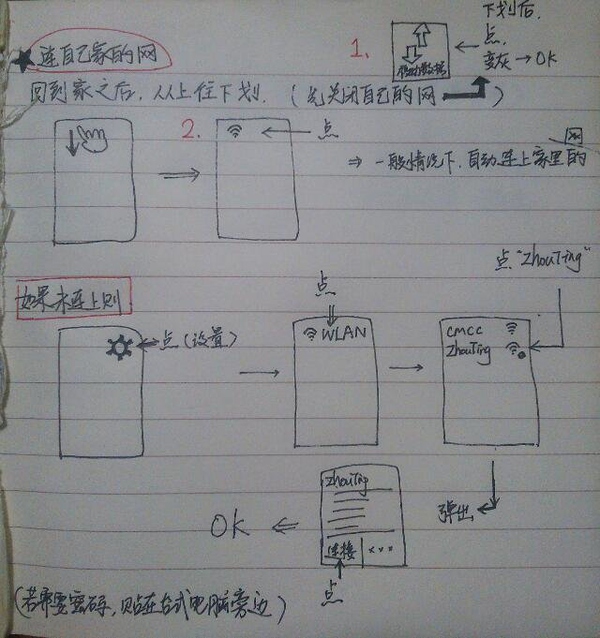 下划后,
1.
点,
★连自己家的网
移动数据
变灰→OK
回到家之后,从上往下划.(先关闭自己的网)
2.
点
⇒一般情况下,自动连上家里的网
点"ZhouTing"
如果未连上则
点
点(设置)
WLAN
cmcc
ZhouTing
弹出
ZhouTing
OK
连接
×××
点
(若需要密码,贴在台式电脑旁边)